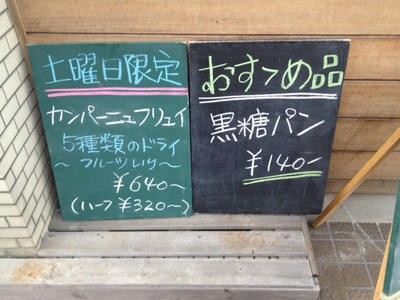 土曜日限定
カンパーニュフリュイ
5種類のドライ
～フルーツ入り～
¥640～
(ハーフ¥320～)
おすすめ品
黒糖パン
¥140-